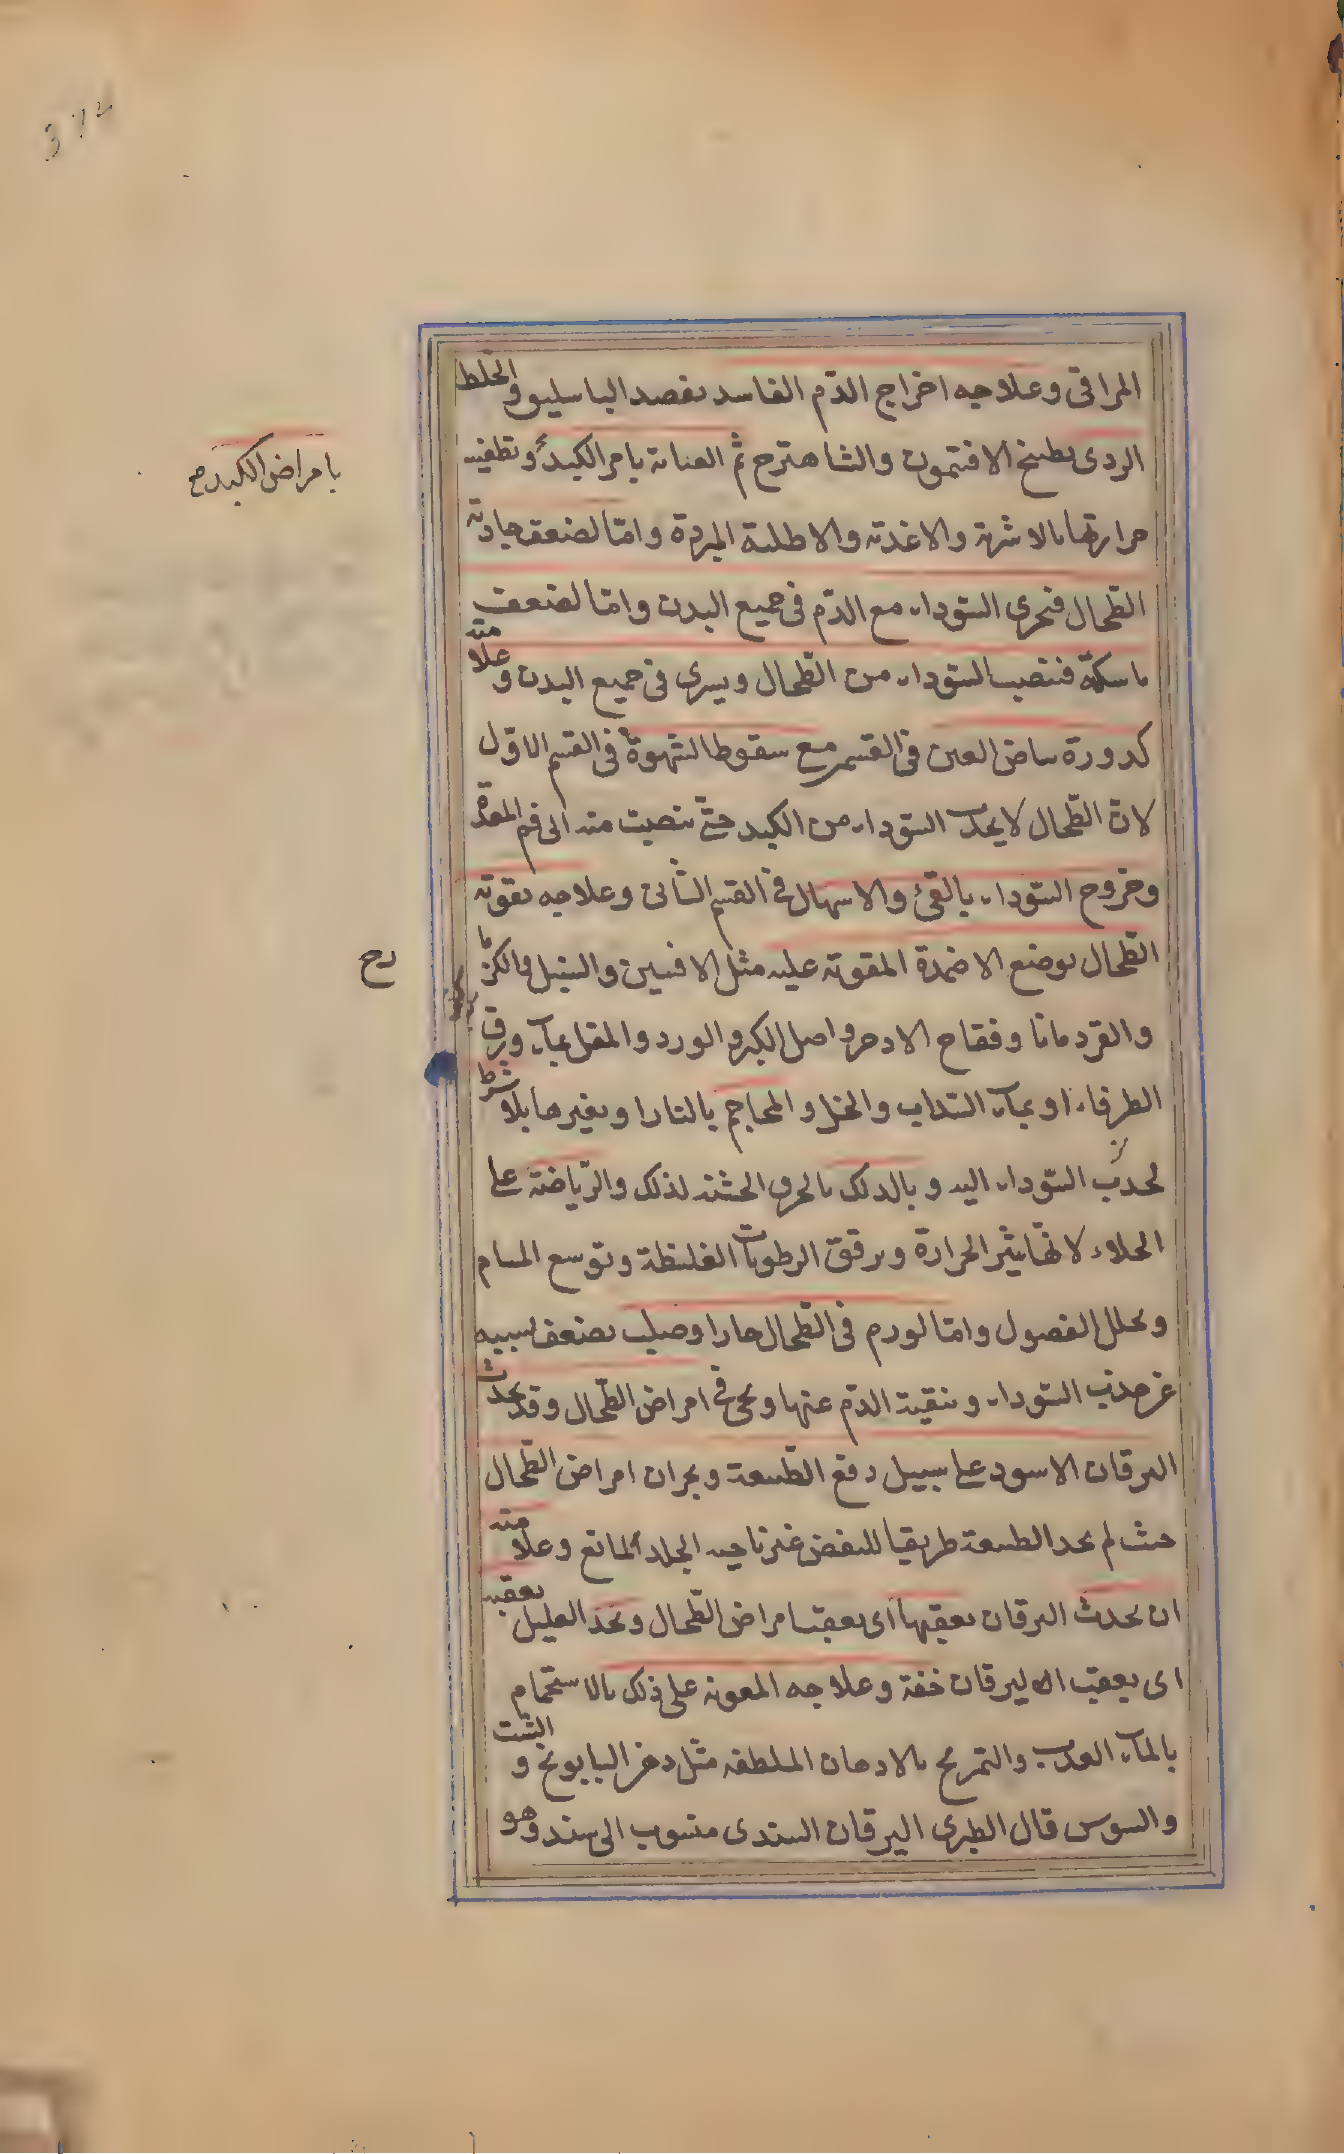 المراقى وعلاجه اخراج الدّم الفاسد بفصد الباسليق والخلط
الردى بطبخ الافتمون والشاهترج ثم العناية بامر الكبد وتطفيه
حرارتها بالاشربة والاغذية والاطلية المبردة وامّا لضعف جاذبة
الطّحال فتجرى السّوداء مع الدّم فى جميع البدن وامّا لضعف
ماسكته فتنصب السّوداء من الطّحال ويسرى فى جميع البدن وعلامته
كدورة بياض العين فى القسمين مع سقوط الشهوة فى القسم الاوّل
لان الطّحال لا يجذب السّوداء من الكبد حتّى تنصبّ منه الى فم المعدة
وخروج السّوداء بالقئ والاسهال فى القسم الثانى وعلاجه بقوية
الطّحال بوضع الاضمدة المقوية عليه مثل الافسنتين والسنبل والكزمازج
والقردمانا وفقاح الاذخر واصل الكبر والورد والمقل بماء ورق
الطرفاء او بماء السّداب والخل والمحاجم بالنار او بغيرها بلا شرط
لجذب السّوداء اليه وبالدلك بالخرق الخشنة لذلك والرّياضة على
الخلاء لانّها يثير الحرارة ويرقق الرطوبات الغليظة وتوسع المسام
ويحلل الفصول وامّا لورم فى الطّحال حار او صلب يضعف بسببه
عن جذب السّوداء وتنقية الدّم عنها ويجئ فى امراض الطّحال وقد يحدث
اليرقان الاسود على سبيل دفع الطّبيعة وبحران امراض الطّحال
حيث لم يجد الطبيعة طريقا للنفض غير ناحيه الجلد المانع وعلامته
ان يحدث اليرقان بعقبها اى بعقب امراض الطّحال ويجد العليل بعقبه
اى بعقب اليرقان خفة وعلاجه المعونه على ذلك بالاستحمام
بالماء العذب والتمريخ بالادهان الملطفه مثل دهن البابونج والشبت
والسوسن قال الطبرى اليرقان السندى منسوب الى سند وهو
بامراض الكبد صح
زج